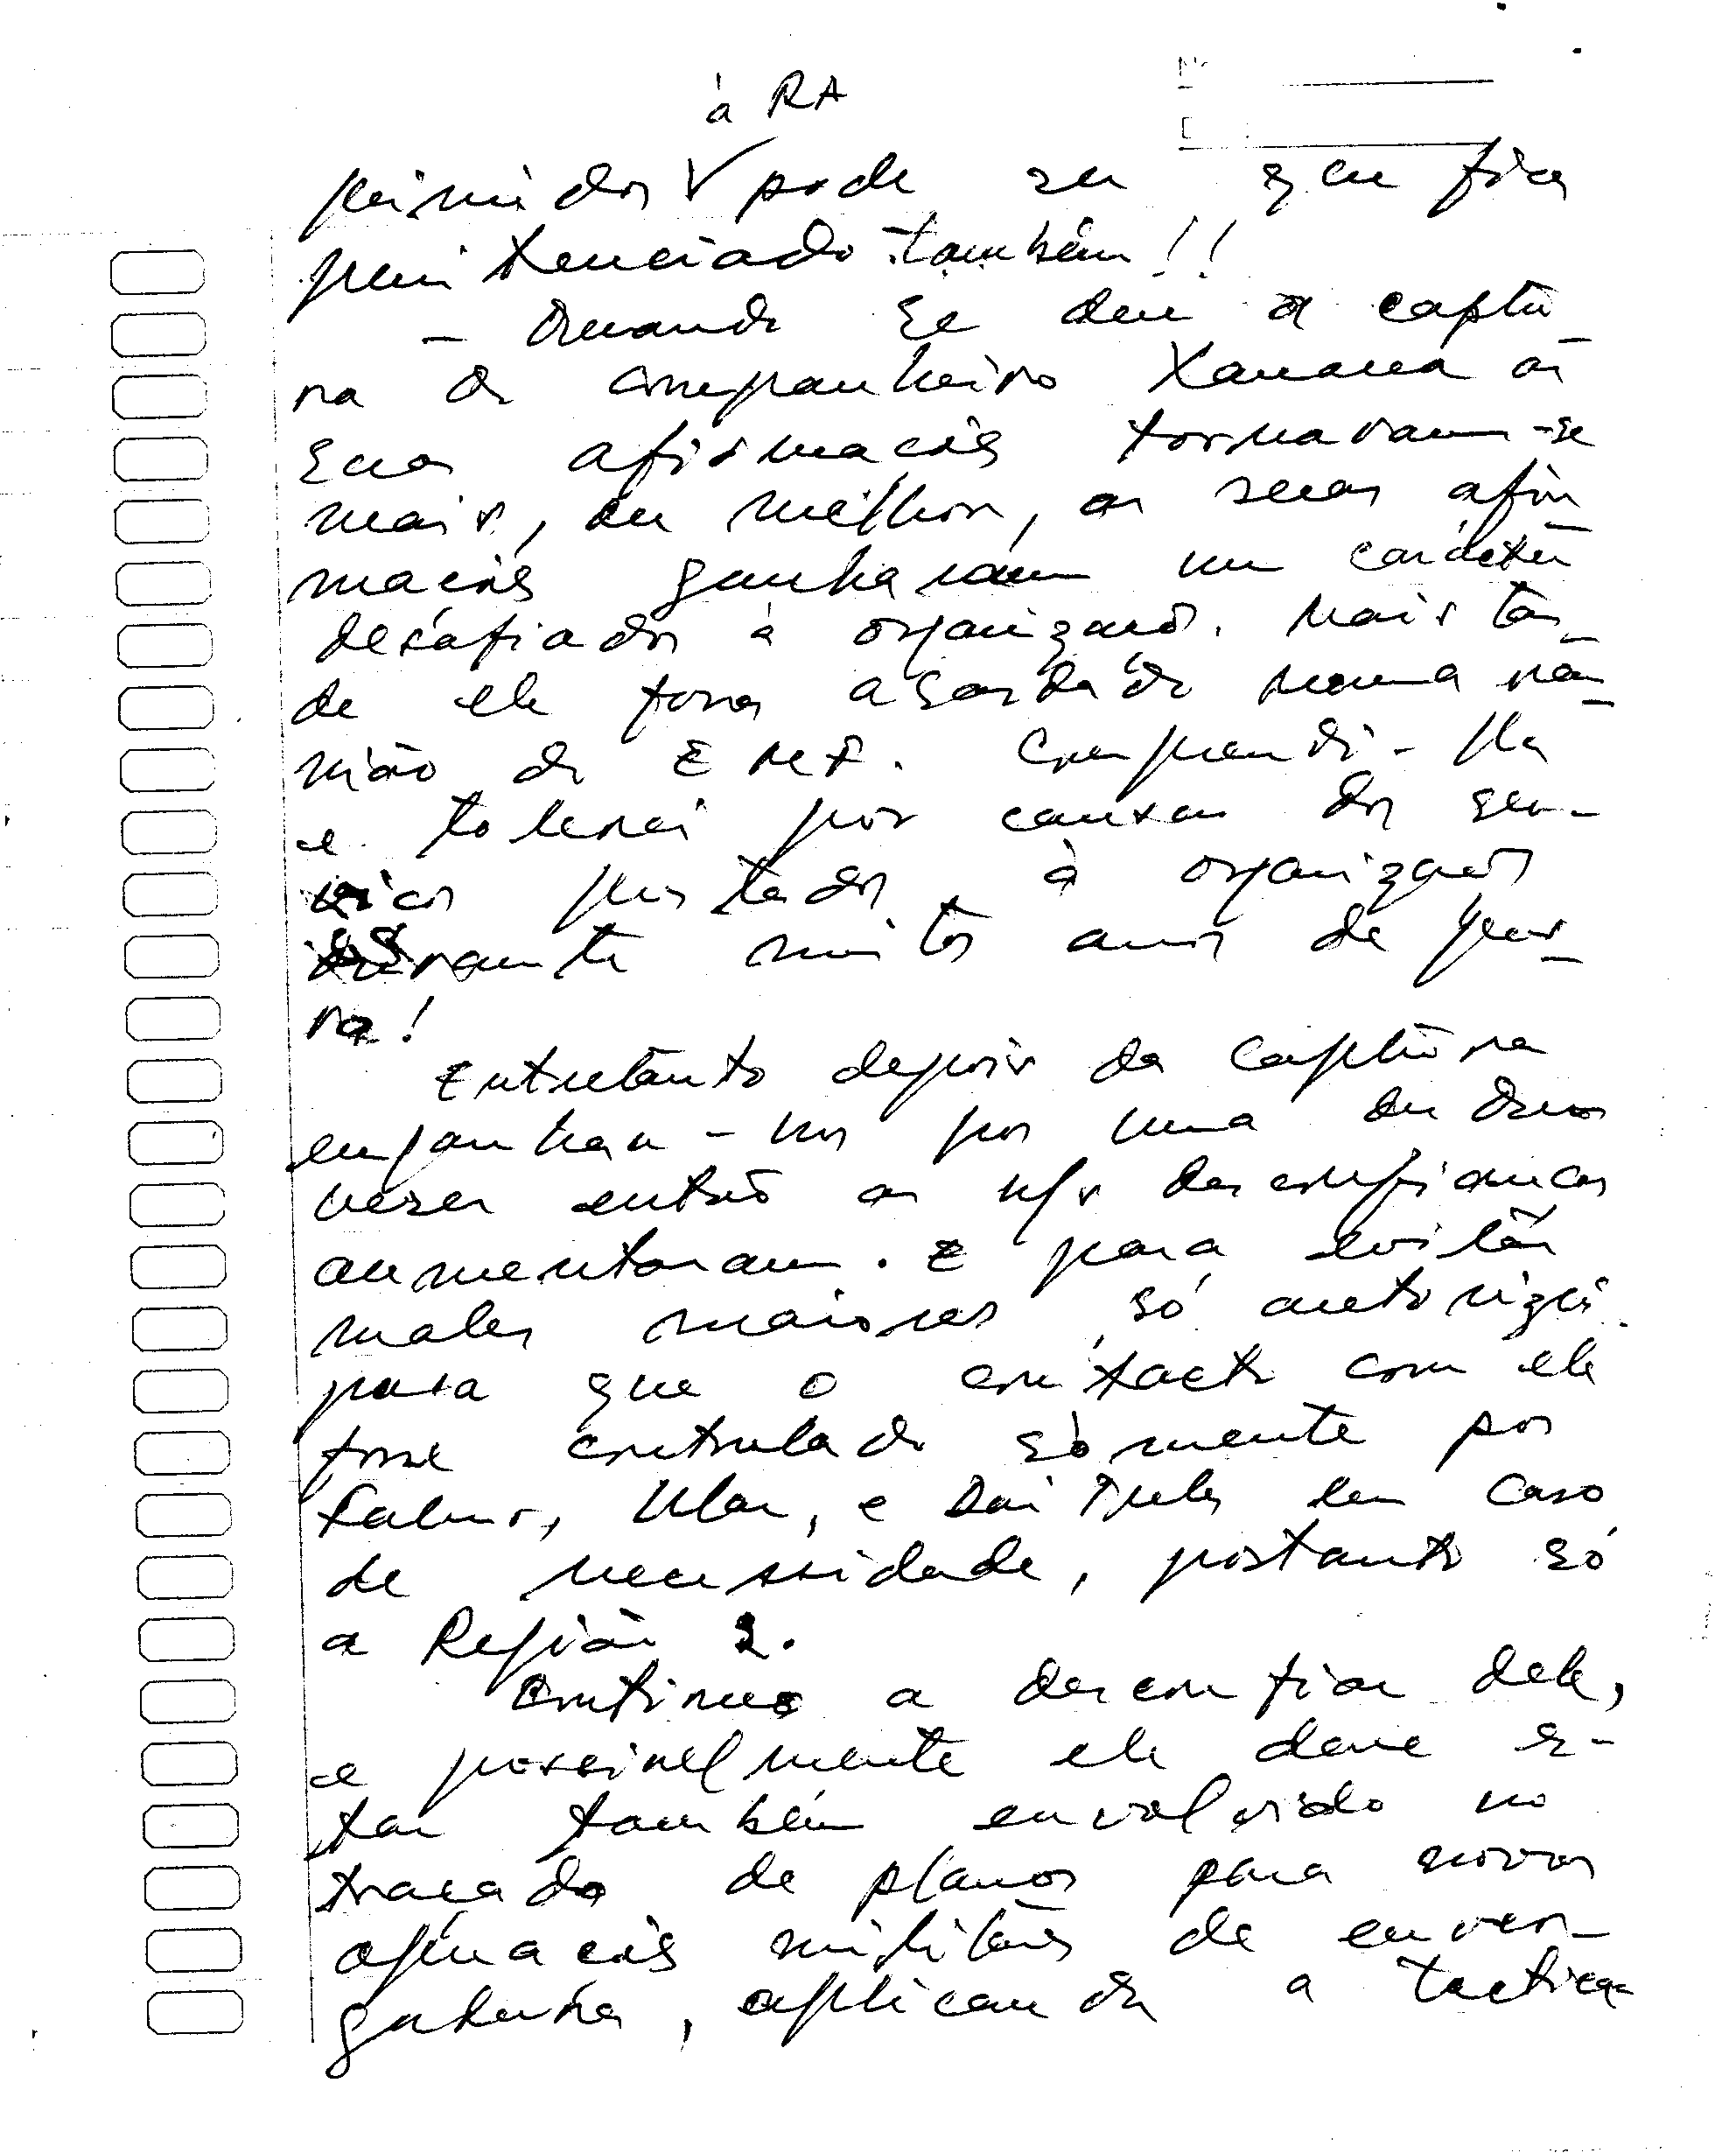 à RA
primidos pode ser que fica
penitenciado também!!
- Quando se deu a captu-
ra do companheiro Xanana as
suas afirmações tornavam-se
mais, ou melhor, as suas afir-
mações ganharam um carácter
desafiador à organização. Mais tar-
de ele fora abordado numa reu-
nião do EMF. Compreendi-
e tolerei por causa dos ser-
viços prestados à organização
durante muitos anos de guer-
ra!
Entretanto depois da captura
enganhar-nos por uma ou duas
vezes então as n/s desconfianças
aumentaram. E para evitar
males maiores, só autorizei
para que o contacto com ele
fosse controlado sòmente por
Falur, Ular, e Dai Tula em caso
de necessidade, portanto só
a Região 2.
Continuo a desconfiar dele,
e possivelmente ele deve es-
tar também envolvido no
traçado de planos para novas
operações militares de enver-
gadura, aplicando a tactica